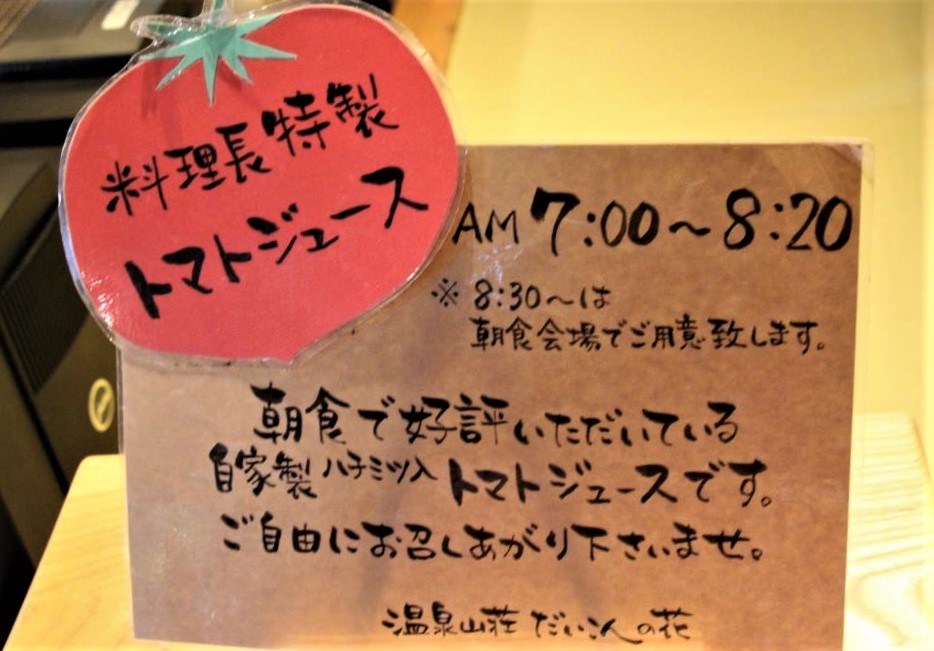 料理長特製
トマトジュース
AM 7:00～8:20
※ 8:30～は
朝食会場でご用意致します。
朝食で好評いただいている
自家製ハチミツ入トマトジュースです。
ご自由にお召しあがり下さいませ。
温泉山荘 だいこんの花